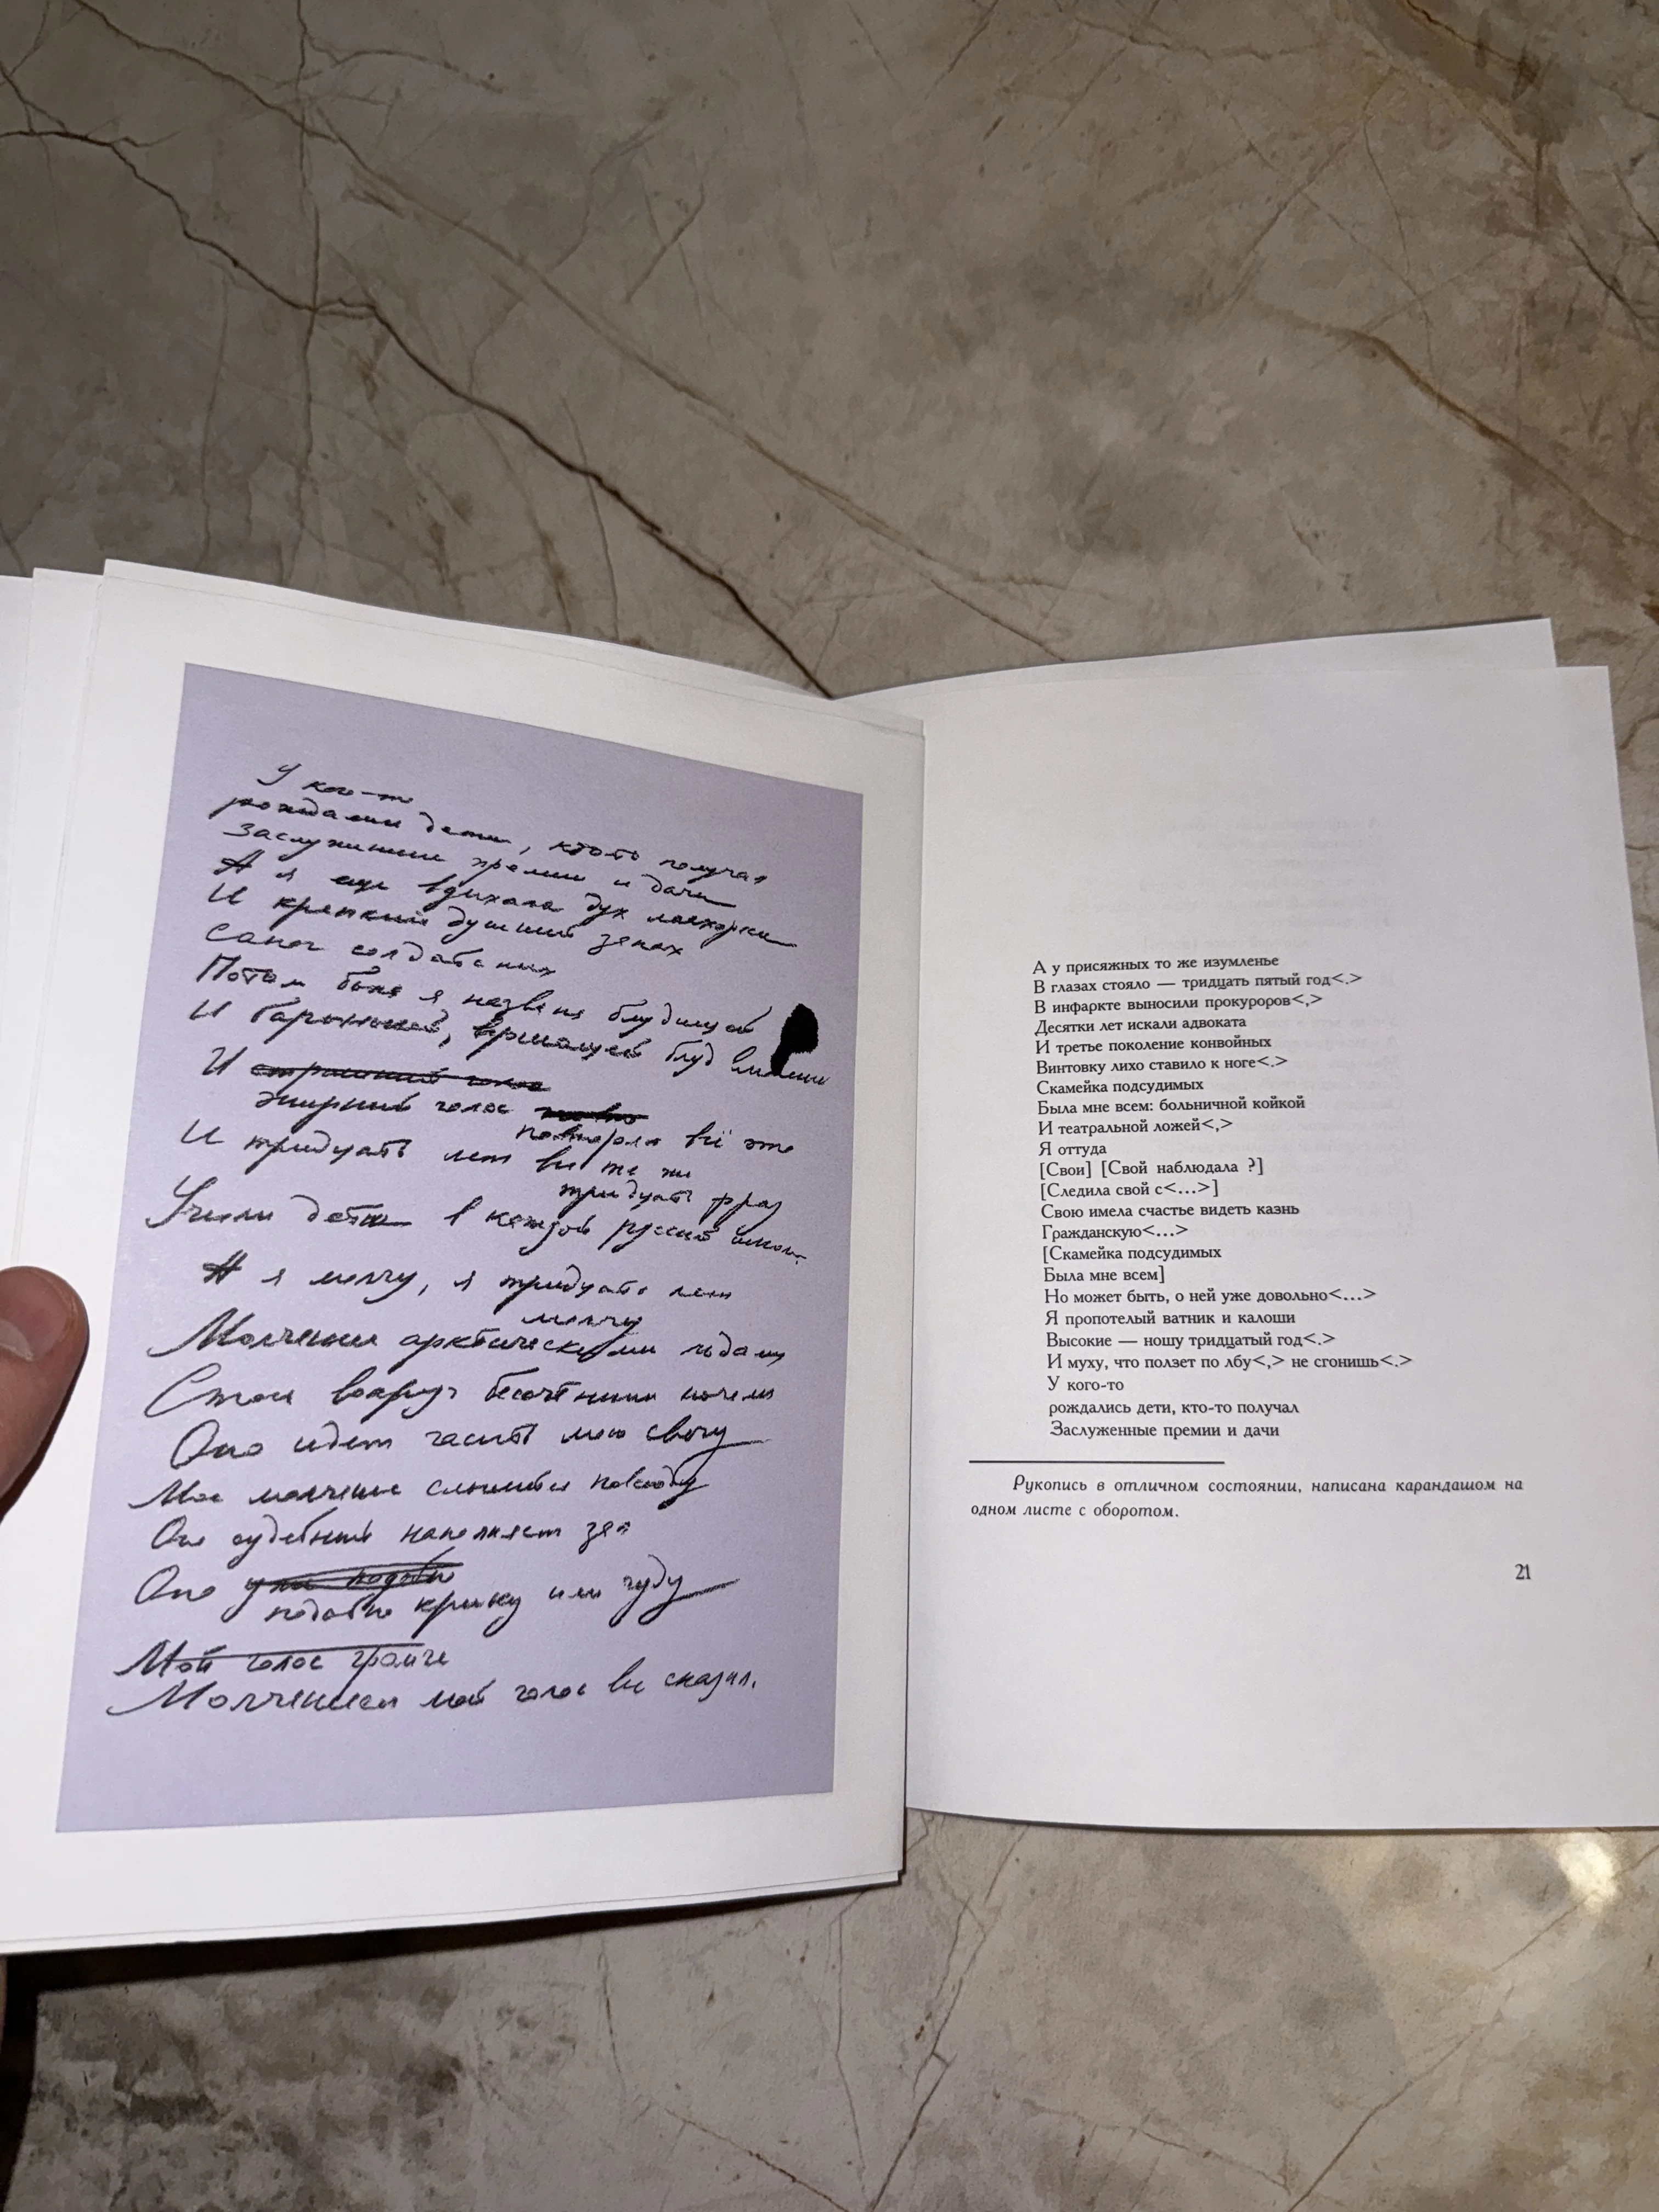 У кого-то
рождались дети, кто-то получал
Заслуженные премии и дачи
А я еще вдыхала дух махорки
И крепкий душный запах
Сапог солдатских
Потом была я названа блудницей
И барынькой,
И страшный голос
жирный голос
повторял всё это
И тридцать лет все те же
тридцать фраз
Учили дети в каждой русской школе
А я молчу, я тридцать лет
молчу
Молчание арктическими льдами
Стоит вокруг бессчетными ночами
Оно идет гасить мою свечу
Мое молчание слышится повсюду
Оно судебный наполняет зал
Оно
подобно крику или чуду
Мой голос громче
Молчанием мой голос все сказал.
А у присяжных то же изумленье
В глазах стояло — тридцать пятый год<.>
В инфаркте выносили прокуроров<,>
Десятки лет искали адвоката
И третье поколение конвойных
Винтовку лихо ставило к ноге<.>
Скамейка подсудимых
Была мне всем: больничной койкой
И театральной ложей<,>
Я оттуда
[Свои] [Свой наблюдала ?]
[Следила свой с<...>]
Свою имела счастье видеть казнь
Гражданскую<...>
[Скамейка подсудимых
Была мне всем]
Но может быть, о ней уже довольно<...>
Я пропотелый ватник и калоши
Высокие — ношу тридцатый год<.>
И муху, что ползет по лбу<,> не сгонишь<.>
У кого-то
рождались дети, кто-то получал
Заслуженные премии и дачи
Рукопись в отличном состоянии, написана карандашом на
одном листе с оборотом.
21